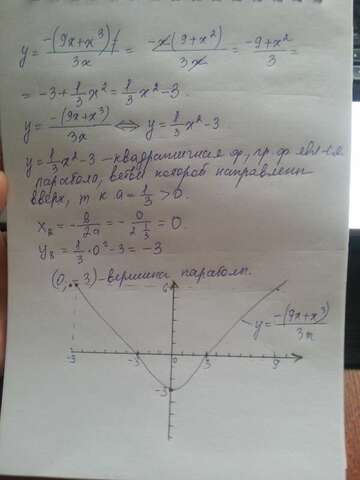 y = -(9x+x³)/3x = -x(9+x²)/3x = -9+x²/3 =
= -3 + 1/3 x² = 1/3 x² - 3.
y = -(9x+x³)/3x ⟺ y = 1/3 x² - 3
y = 1/3 x² - 3 - квадратичная ф, гр. ф явл-ся
парабола, ветви которой направлены
вверх, т к a = 1/3 > 0.
x₈ = -в/2а = - 0/2 1/3 = 0.
y₈ = 1/3 · 0² - 3 = -3
(0, -3) - вершина параболы.
6
y = -(9x+x³)/3x
-9 -3 0 3 9
-3